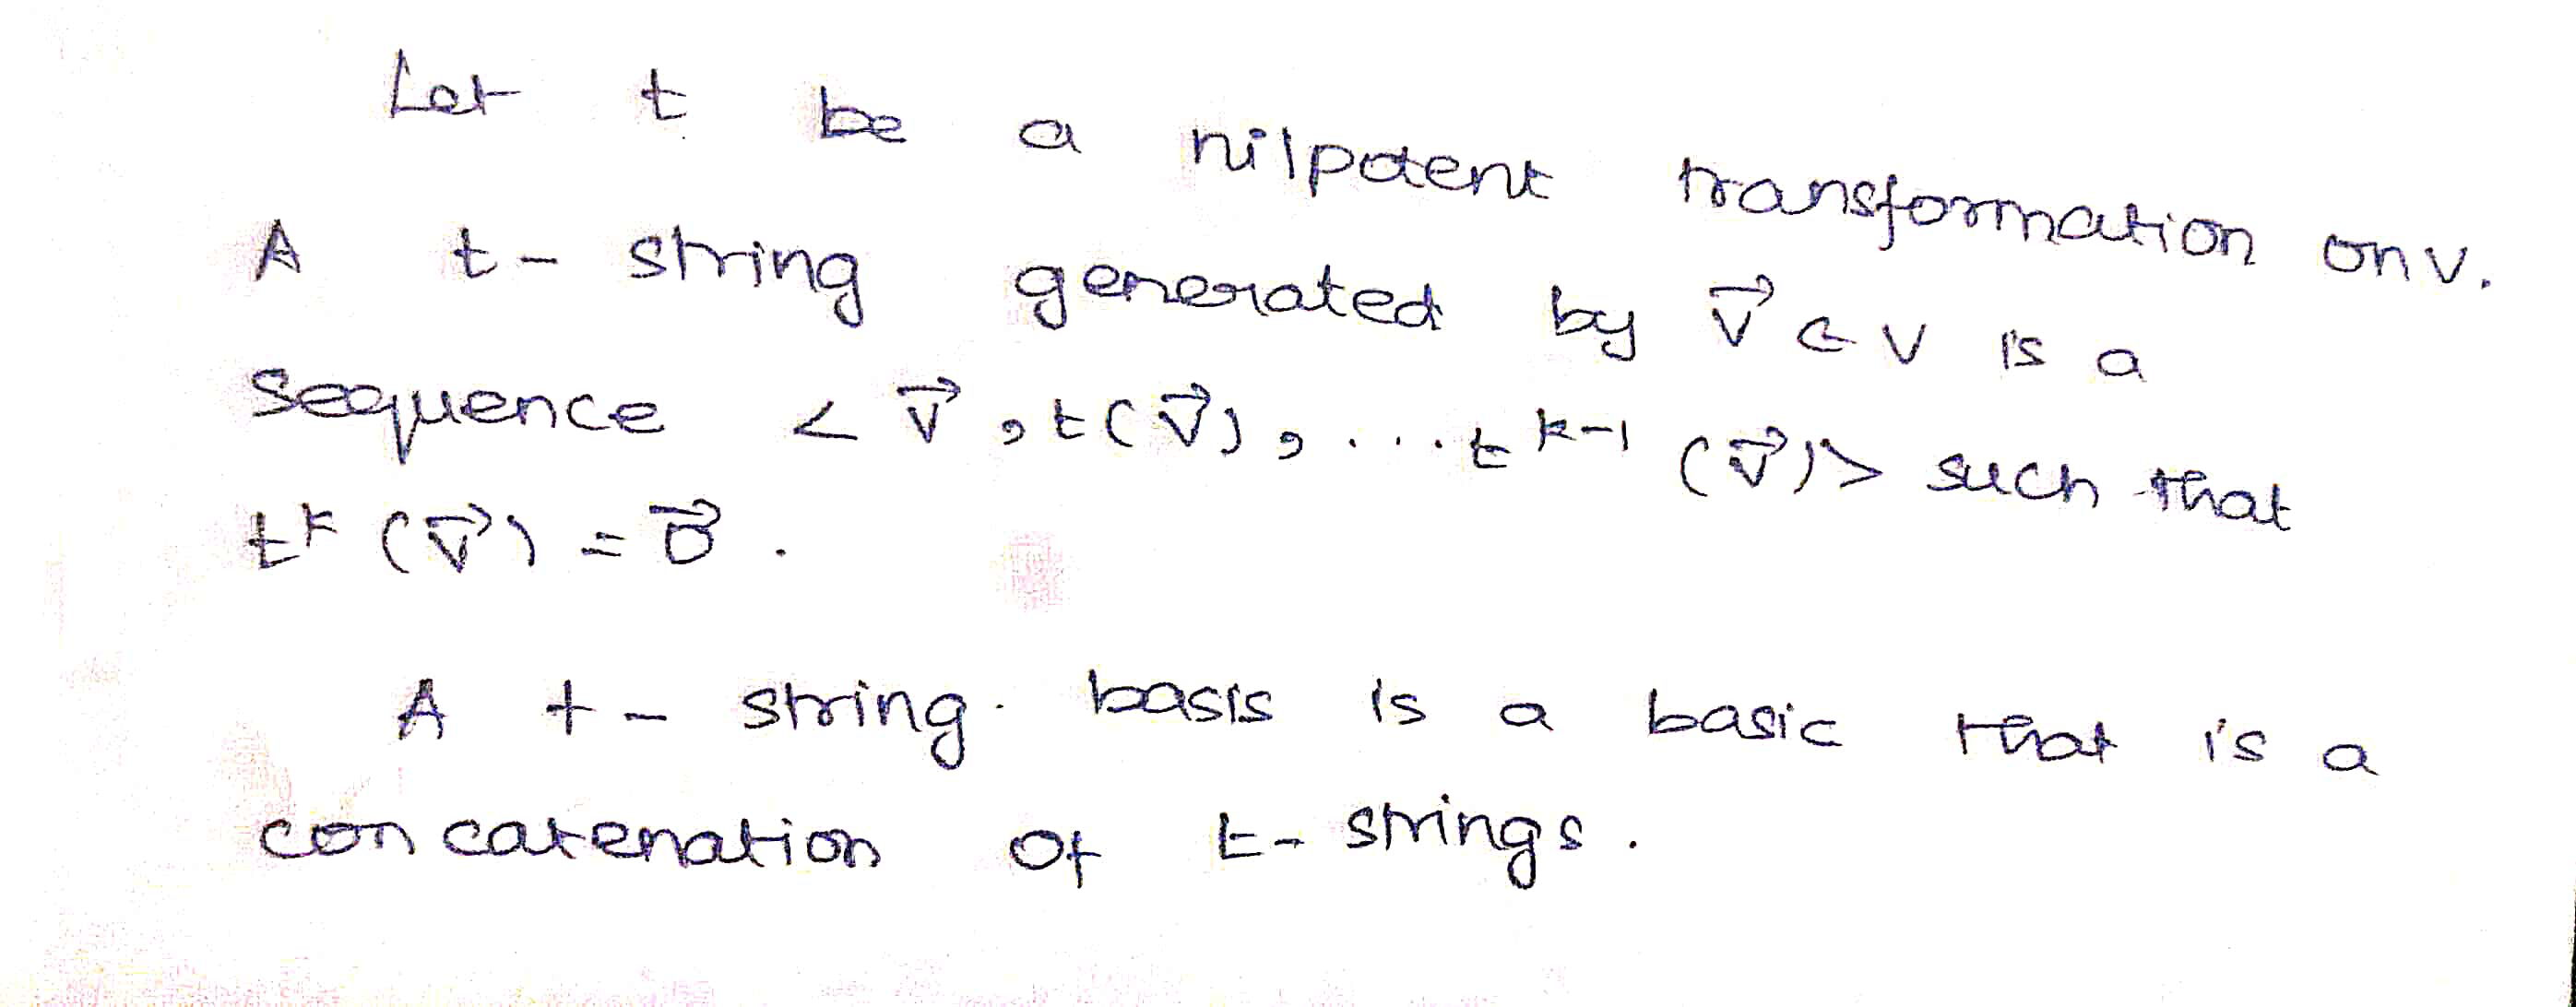 Let t be a nilpotent transformation on V.
A t- string generated by v⃗ ∈ V is a
sequence < v⃗, t(v⃗), ... t^{k-1} (v⃗)> such that
t^k (v⃗) = 0⃗.
A t- string basis is a basic that is a
concatenation of t- strings.